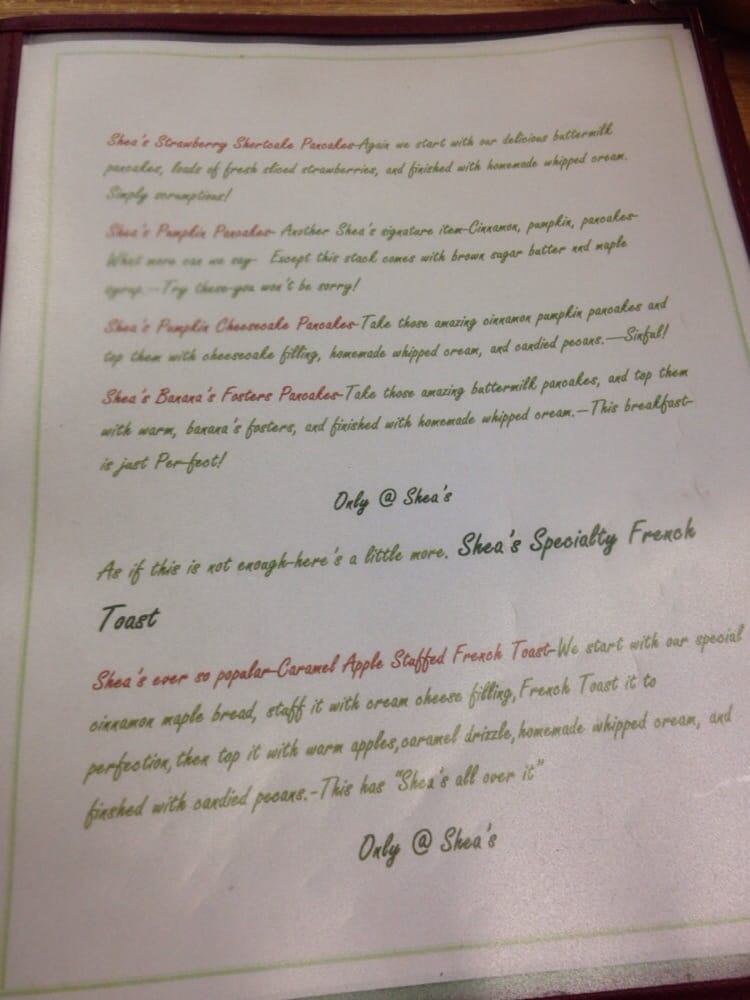 Shea's Strawberry Shortcake Pancakes-Again we start with our delicious buttermilk
pancakes, loads of fresh sliced strawberries, and finished with homemade whipped cream.
Simply scrumptious!
Shea's Pumpkin Pancakes- Another Shea's signature item-Cinnamon, pumpkin, pancakes-
What more can we say- Except this stack comes with brown sugar butter nnd maple
syrup.—Try these-you won't be sorry!
Shea's Pumpkin Cheesecake Pancakes-Take those amazing cinnamon pumpkin pancakes and
top them with cheesecake filling, homemade whipped cream, and candied pecans.—Sinful!
Shea's Banana's Fosters Pancakes-Take those amazing buttermilk pancakes, and top them
with warm, banana's fosters, and finished with homemade whipped cream.—This breakfast-
is just Per-fect!
Only @ Shea's
As if this is not enough-here's a little more. Shea's Specialty French
Toast
Shea's ever so popular-Caramel Apple Stuffed French Toast-We start with our special
cinnamon maple bread, stuff it with cream cheese filling,French Toast it to
perfection,then top it with warm apples,caramel drizzle,homemade whipped cream, and
finshed with candied pecans.-This has "Shea's all over it"
Only @ Shea's